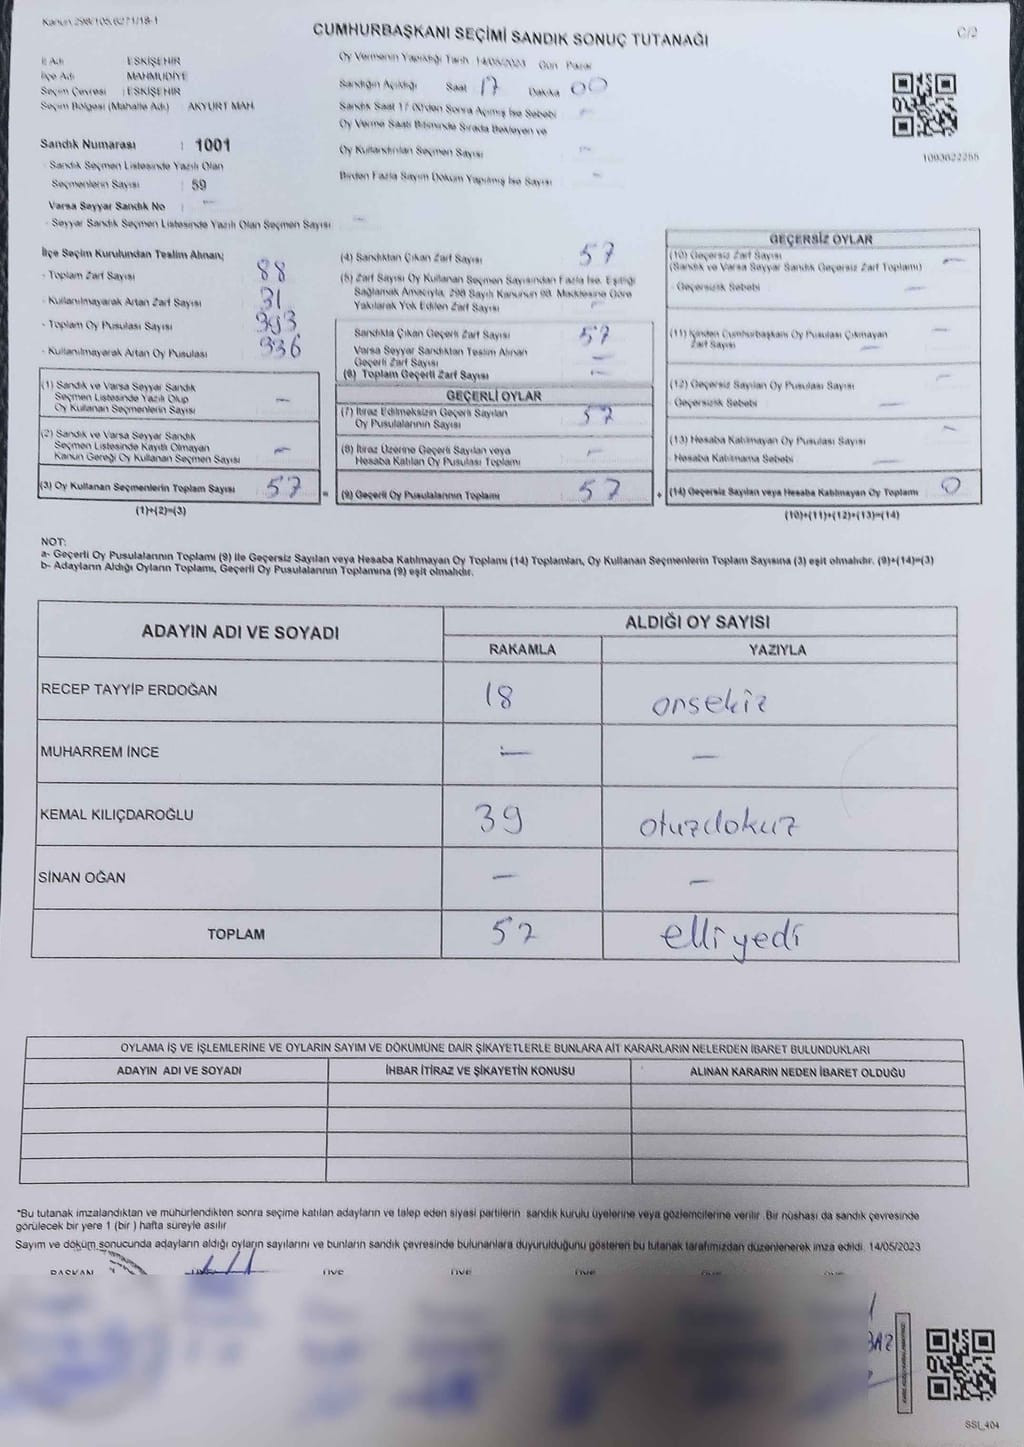 Kanun 298/105,6271/18-1
CUMHURBAŞKANI SEÇİMİ SANDIK SONUÇ TUTANAĞI
C/2
İl Adı ESKİŞEHİR
İlçe Adı MAHMUDİYE
Seçim Çevresi : ESKİŞEHİR
Seçim Bölgesi (Mahalle Adı) AKYURT MAH
Sandık Numarası : 1001
- Sandık Seçmen Listesinde Yazılı Olan
Seçmenlerin Sayısı : 59
Varsa Seyyar Sandık No : -
- Seyyar Sandık Seçmen Listesinde Yazılı Olan Seçmen Sayısı -
Oy Vermenin Yapıldığı Tarih 14/05/2023 Gün Pazar
Sandığın Açıldığı Saat 17 Dakika 00
Sandık Saat 17 00'den Sonra Açılmış İse Sebebi -
Oy Verme Saati Bitiminde Sırada Bekleyen ve
Oy Kullandırılan Seçmen Sayısı -
Birden Fazla Sayım Döküm Yapılmış İse Sayısı -
1093622255
İlçe Seçim Kurulundan Teslim Alınan;
- Toplam Zarf Sayısı 88
- Kullanılmayarak Artan Zarf Sayısı 31
- Toplam Oy Pusulası Sayısı 393
- Kullanılmayarak Artan Oy Pusulası 336
(1) Sandık ve Varsa Seyyar Sandık
Seçmen Listesinde Yazılı Olup
Oy Kullanan Seçmenlerin Sayısı -
(2) Sandık ve Varsa Seyyar Sandık
Seçmen Listesinde Kayıtlı Olmayan
Kanun Gereği Oy Kullanan Seçmen Sayısı -
(3) Oy Kullanan Seçmenlerin Toplam Sayısı 57 =
(1)+(2)=(3)
(4) Sandıktan Çıkan Zarf Sayısı 57
(5) Zarf Sayısı Oy Kullanan Seçmen Sayısından Fazla İse, Eşitliği
Sağlamak Amacıyla, 298 Sayılı Kanunun 98. Maddesine Göre
Yakılarak Yok Edilen Zarf Sayısı -
Sandıkta Çıkan Geçerli Zarf Sayısı 57
Varsa Seyyar Sandıktan Teslim Alınan
Geçerli Zarf Sayısı -
(6) Toplam Geçerli Zarf Sayısı -
GEÇERLİ OYLAR
(7) İtiraz Edilmeksizin Geçerli Sayılan
Oy Pusulalarının Sayısı 57
(8) İtiraz Üzerine Geçerli Sayılan veya
Hesaba Katılan Oy Pusulası Toplamı -
(9) Geçerli Oy Pusulalarının Toplamı 57 +
GEÇERSİZ OYLAR
(10) Geçersiz Zarf Sayısı
(Sandık ve Varsa Seyyar Sandık Geçersiz Zarf Toplamı) -
- Geçersizlik Sebebi -
(11) İçinden Cumhurbaşkanı Oy Pusulası Çıkmayan
Zarf Sayısı -
(12) Geçersiz Sayılan Oy Pusulası Sayısı -
- Geçersizlik Sebebi -
(13) Hesaba Katılmayan Oy Pusulası Sayısı -
- Hesaba Katılmama Sebebi -
(14) Geçersiz Sayılan veya Hesaba Katılmayan Oy Toplamı 0
(10)+(11)+(12)+(13)=(14)
NOT:
a- Geçerli Oy Pusulalarının Toplamı (9) ile Geçersiz Sayılan veya Hesaba Katılmayan Oy Toplamı (14) Toplamları, Oy Kullanan Seçmenlerin Toplam Sayısına (3) eşit olmalıdır. (9)+(14)=(3)
b- Adayların Aldığı Oyların Toplamı, Geçerli Oy Pusulalarının Toplamına (9) eşit olmalıdır.
ADAYIN ADI VE SOYADI ALDIĞI OY SAYISI
RAKAMLA YAZIYLA
RECEP TAYYİP ERDOĞAN 18 onsekiz
MUHARREM İNCE - -
KEMAL KILIÇDAROĞLU 39 otuzdokuz
SİNAN OĞAN - -
TOPLAM 57 elli yedi
OYLAMA İŞ VE İŞLEMLERİNE VE OYLARIN SAYIM VE DÖKÜMÜNE DAİR ŞİKAYETLERLE BUNLARA AİT KARARLARIN NELERDEN İBARET BULUNDUKLARI
ADAYIN ADI VE SOYADI İHBAR İTİRAZ VE ŞİKAYETİN KONUSU ALINAN KARARIN NEDEN İBARET OLDUĞU
*Bu tutanak imzalandıktan ve mühürlendikten sonra seçime katılan adayların ve talep eden siyasi partilerin sandık kurulu üyelerine veya gözlemcilerine verilir. Bir nüshası da sandık çevresinde
görülecek bir yere 1 (bir ) hafta süreyle asılır
Sayım ve döküm sonucunda adayların aldığı oyların sayılarını ve bunların sandık çevresinde bulunanlara duyurulduğunu gösteren bu tutanak tarafımızdan düzenlenerek imza edildi. 14/05/2023
BAŞKAN ÜYE ÜYE ÜYE ÜYE ÜYE
SSL_404